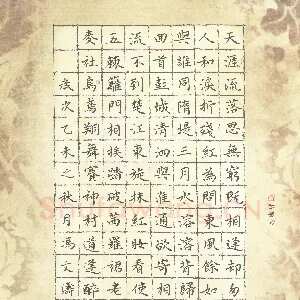 天涯流落思無窮既相逢却匆
人和淚折殘紅為問東風餘
與誰同隋堤三月水溶溶背歸
回首彭城清泗與淮通欲寄相
流不到楚江東旋抹紅妝看使
五棘籬門相挨踏破蒨羅裙老
麥社烏鳶翔舞賽神村道逢醉
歲次乙未之秋月馮文